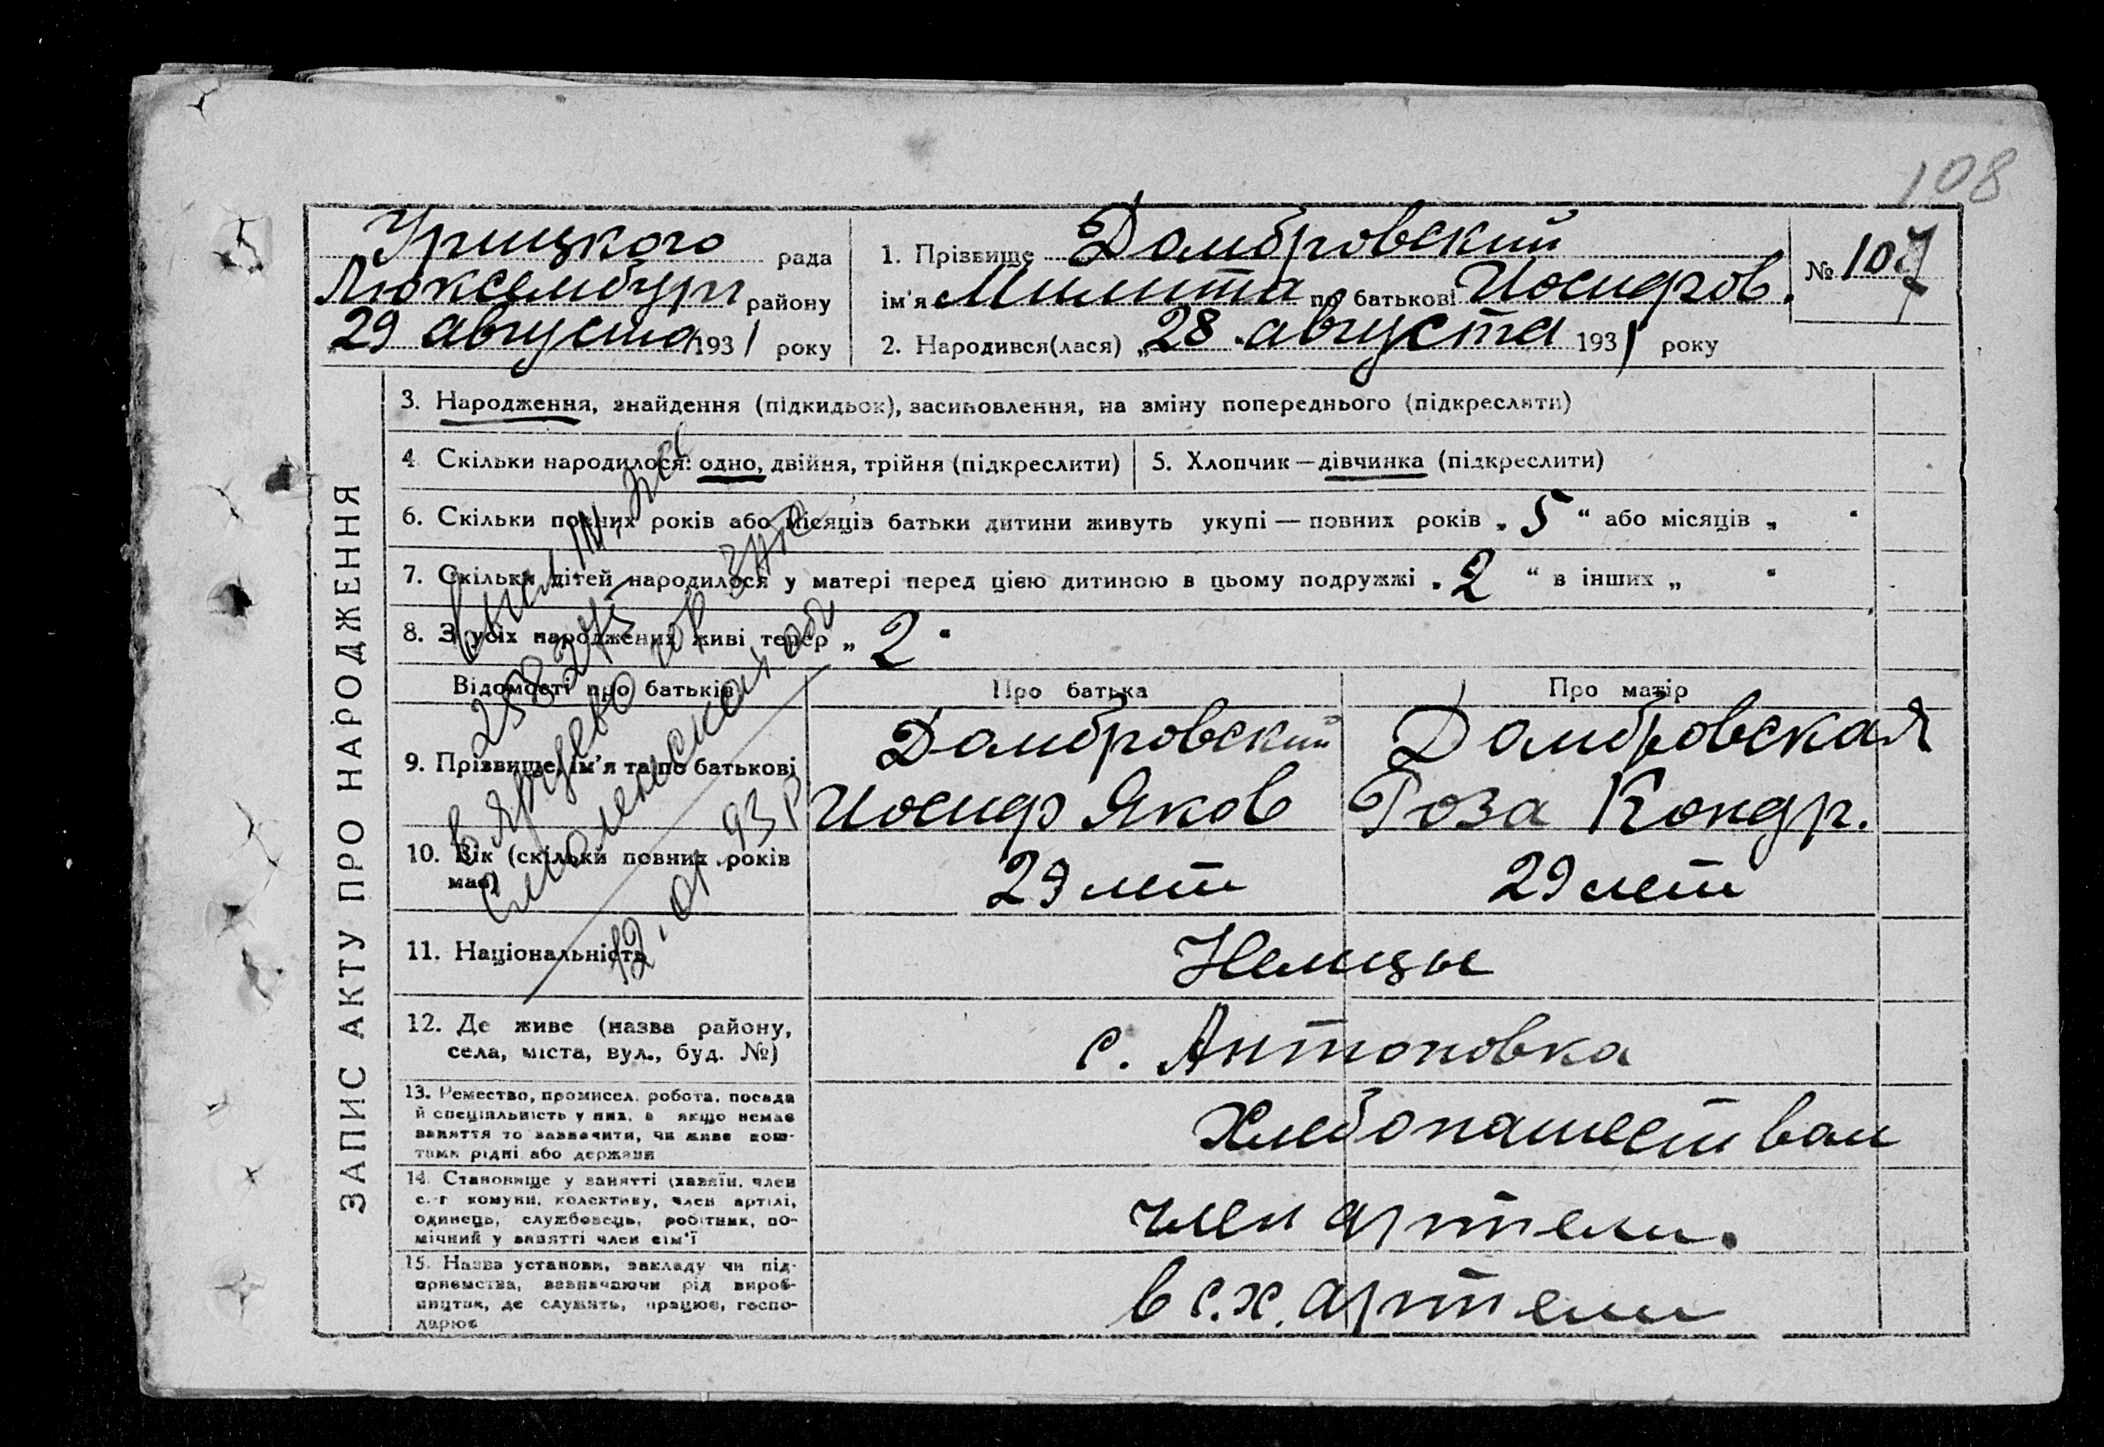 108
Урицкого рада
Люксембург району
29 августа 1931 року
1. Прізвище Домбровский
ім'я Милита по батькові Иосифов.
2. Народився(лася) „28 августа 1931 року
№ 107
ЗАПИС АКТУ ПРО НАРОДЖЕННЯ
3. Народження, знайдення (підкидьок), засиновлення, на зміну попереднього (підкреслити)
4. Скільки народилося: одно, двійня, трійня (підкреслити)
5. Хлопчик — дівчинка (підкреслити)
6. Скільки повних років або місяців батьки дитини живуть укупі — повних років „ 5 “ або місяців „ “
7. Скільки дітей народилося у матері перед цією дитиною в цьому подружжі „ 2 “ в інших „ “
8. З усіх народжених живі тепер „ 2 “
Відомості про батьків
Про батька
Про матір
9. Прізвище, ім'я та по батькові
Домбровский
Иосиф Яков
Домбровская
Роза Кондр.
10. Вік (скільки повних років
має)
29 лет
29 лет
11. Національність
Немцы
12. Де живе (назва району,
села, міста, вул., буд. №)
с. Антоновка
13. Ремество, промисел, робота, посада
й спеціяльність у них, а якщо немає
заняття то зазначити, чи живе кош-
тами рідні або держави
Хлебопашеством
14. Становище у занятті (хазяїн, член
с.-г комуни, колективу, член артілі,
одинець, службовець, робітник, по-
мічний у занятті член сім'ї
член артели.
15. Назва установи, закладу чи під-
приємства, зазначаючи рід вироб-
ництва, де служить, працює, госпо-
дарює
в с.х. артели
258275
в Ярцево гор ЗАГС
Смоленской обл
12. 01. 93 р